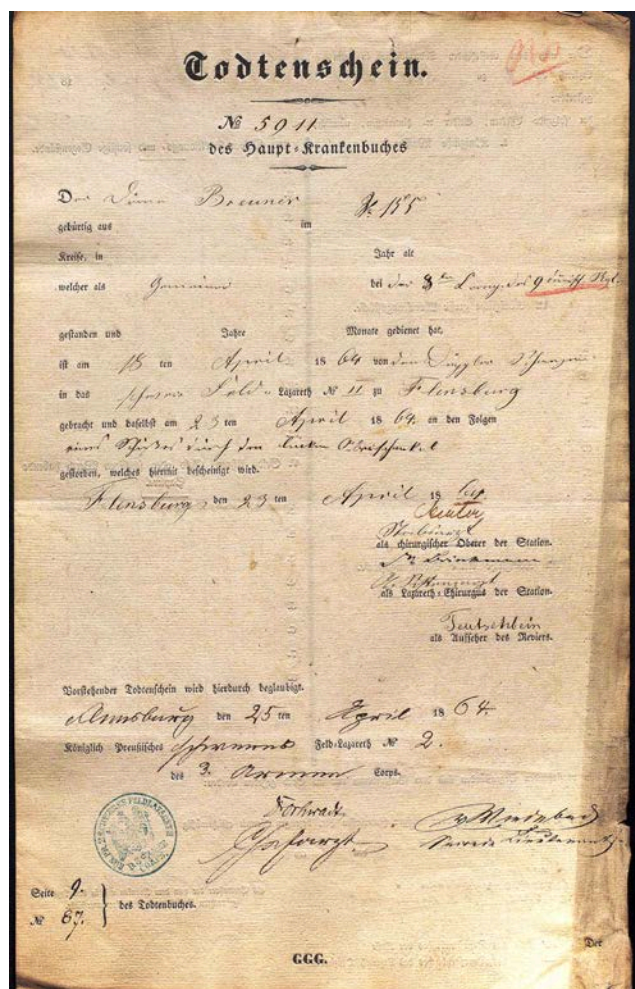 Todtenschein.
№ 5911
des Haupt-Krankenbuches
Der Däne № 155
gebürtig aus im
Kreise, in Jahr alt
welcher als Gemeiner bei der 8ten Comp. des 9 dänisch. Rgt.
gestanden und Jahre Monate gedienet hat,
ist am 18 ten April 1864 von den Düppler Schanzen
in das schwere Feld-Lazareth № II zu Flensburg
gebracht und daselbst am 23 ten April 1864 an den Folgen
eines Schußes durch den linken Oberschenkel
gestorben, welches hiermit bescheinigt wird.
Flensburg, den 23 ten April 1864
Stabsarzt
als chirurgischer Oberer der Station.
als Lazareth-Chirurgus der Station.
als Aufseher des Reviers.
Vorstehender Todtenschein wird hierdurch beglaubigt.
Flensburg den 25 ten April 1864.
Königlich Preußisches schweres Feld-Lazareth № 2.
des 3. Armee Corps.
Chefarzt Seconde Lieutenant
Seite 9.
№ 87.
des Todtenbuches.
Der
GGG.